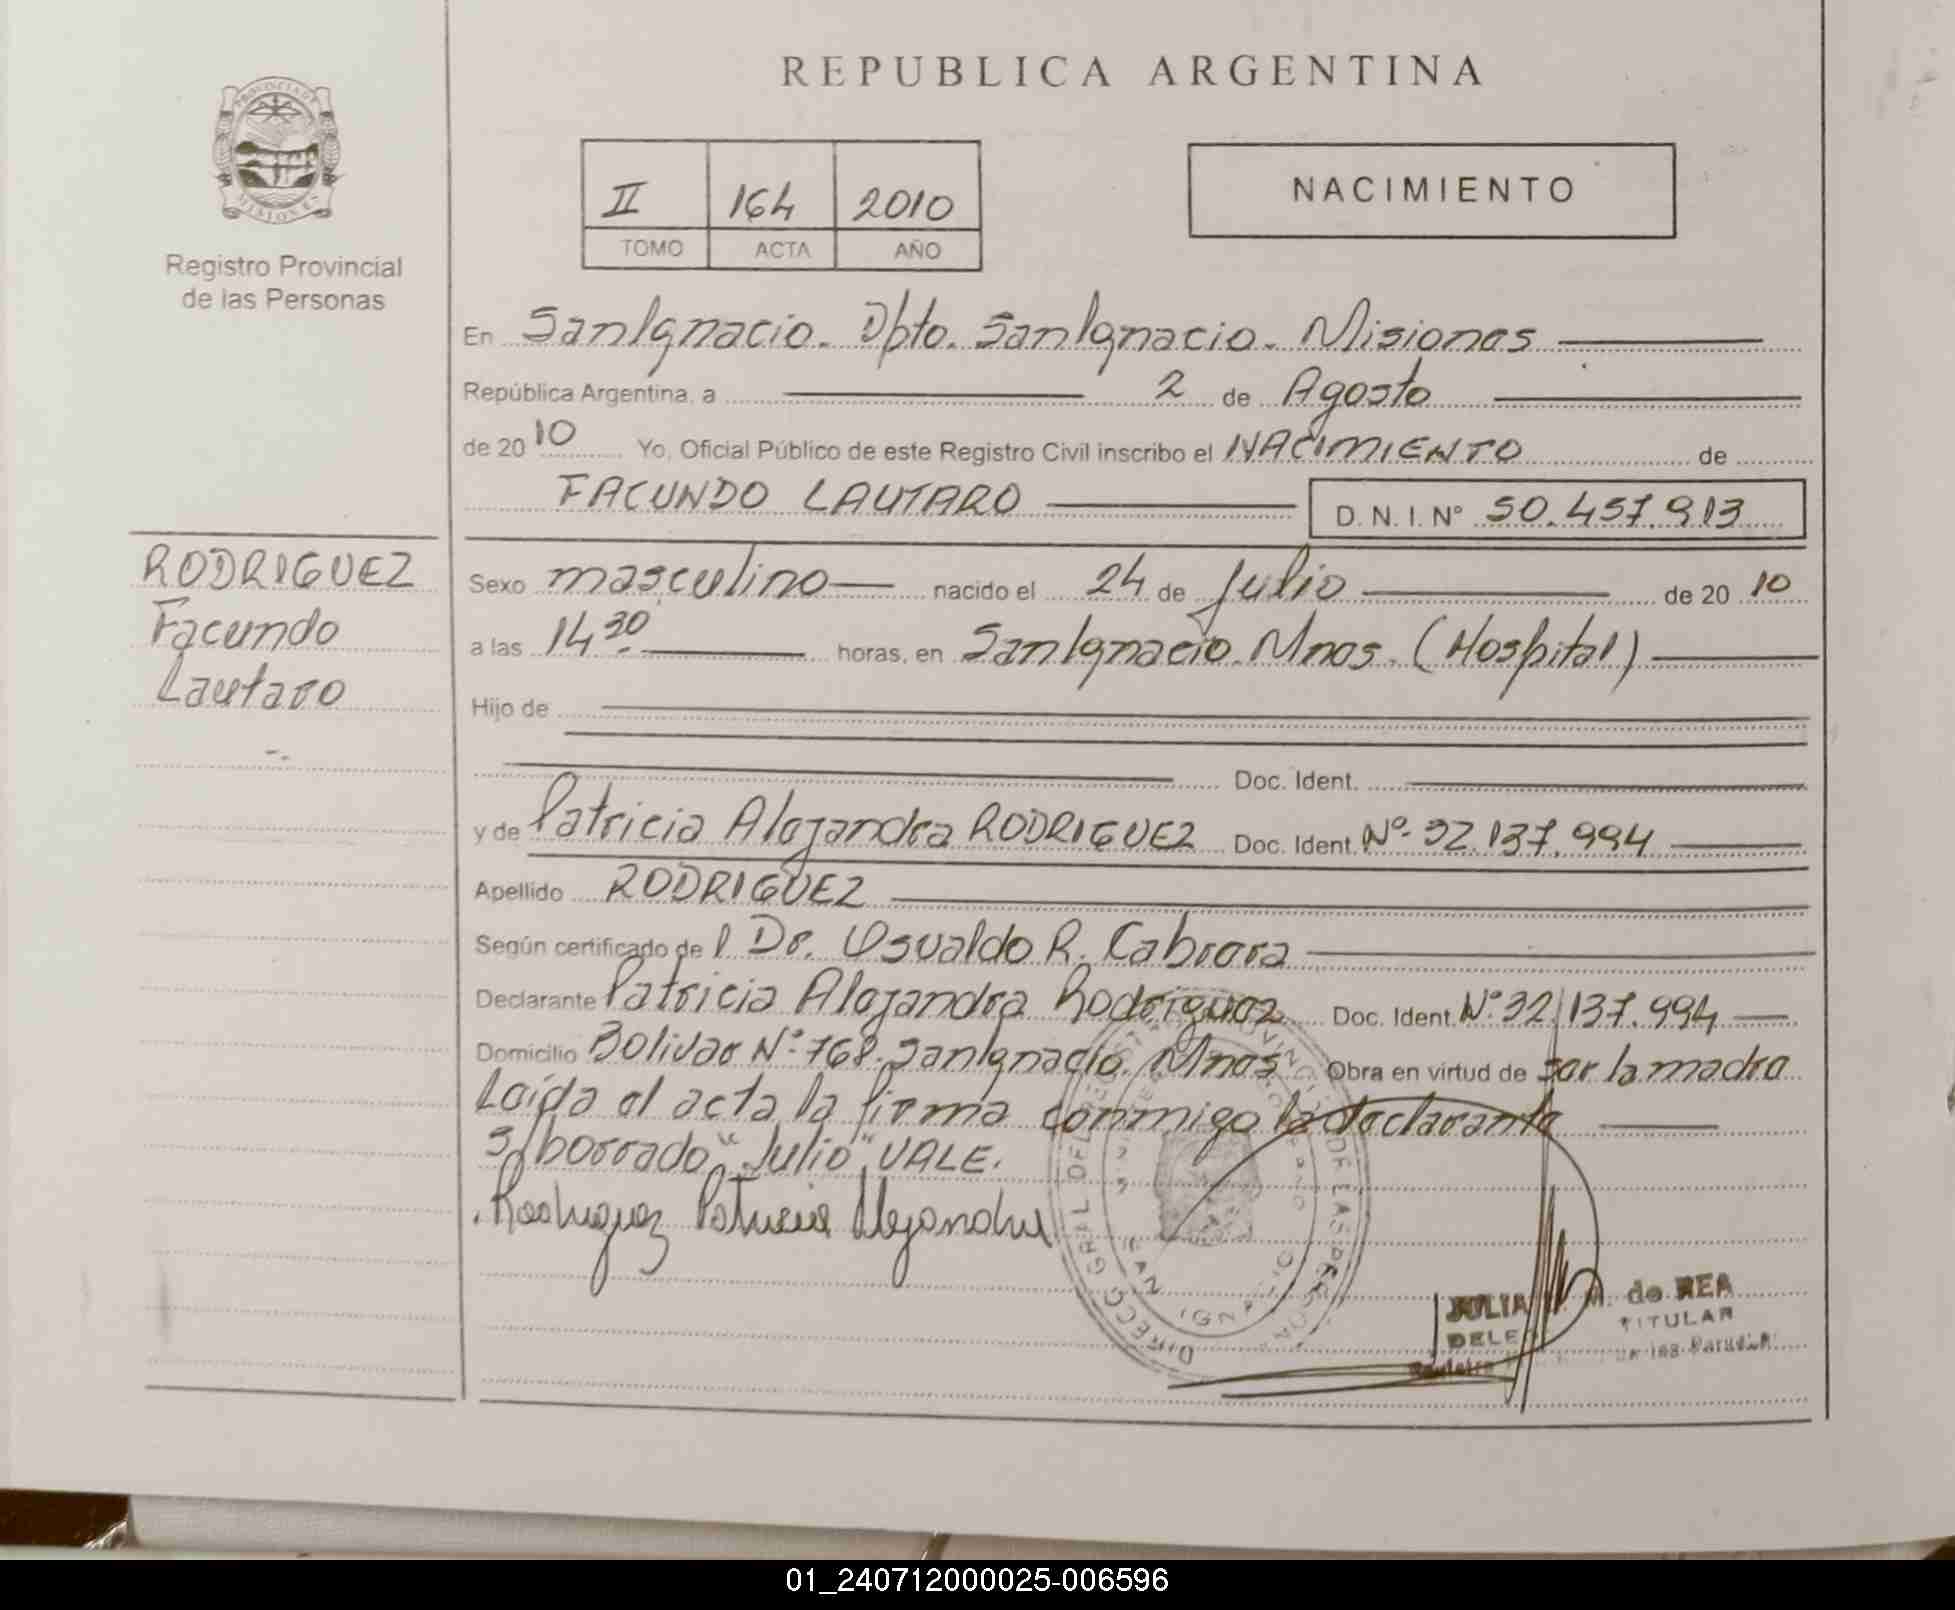 REPUBLICA ARGENTINA
PROVINCIA DE MISIONES
Registro Provincial
de las Personas
II 164 2010
TOMO ACTA AÑO
NACIMIENTO
En San Ignacio. Dpto. San Ignacio. Misiones
República Argentina, a 2 de Agosto
de 2010 Yo, Oficial Público de este Registro Civil inscribo el NACIMIENTO de
FACUNDO LAUTARO D.N.I. Nº 50.457.913
RODRIGUEZ
Facundo
Lautaro
Sexo masculino nacido el 24 de Julio de 2010
a las 14 30 horas, en San Ignacio. Mnes. (Hospital)
Hijo de
Doc. Ident.
y de Patricia Alejandra RODRIGUEZ Doc. Ident. Nº 32.137.994
Apellido RODRIGUEZ
Según certificado de l Dr. Osvaldo R. Cabrera
Declarante Patricia Alejandra Rodriguez Doc. Ident. Nº 32.137.994
Domicilio Bolivar Nº 768. San Ignacio. Mnes Obra en virtud de ser la madre
Leída el acta la firma conmigo la declarante
S/borrado "Julio" VALE.
Rodriguez Patricia Alejandra
DIRECC GRAL DEL REGISTRO PROVINCIAL DE LAS PERSONAS
SAN IGNACIO
JULIA de REA
TITULAR
01_240712000025-006596